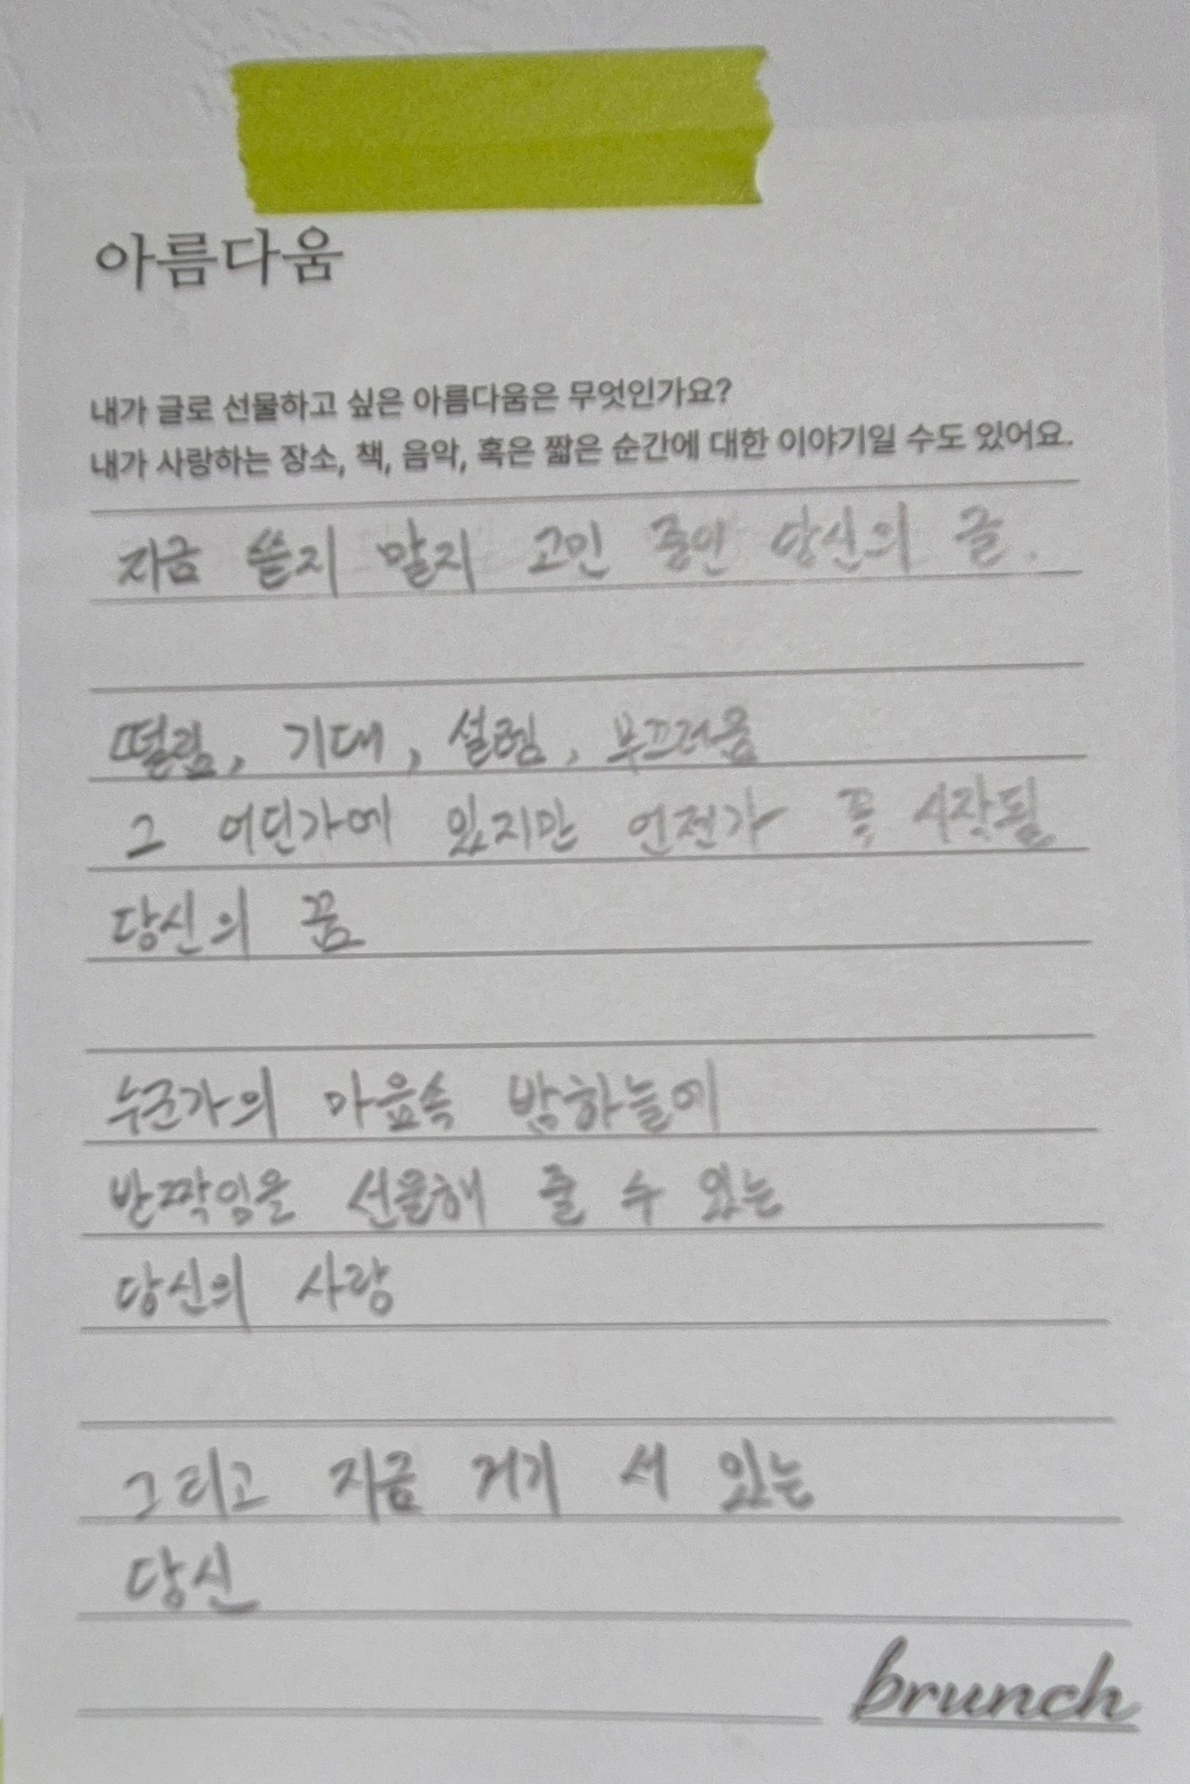 아름다움
내가 글로 선물하고 싶은 아름다움은 무엇인가요?
내가 사랑하는 장소, 책, 음악, 혹은 짧은 순간에 대한 이야기일 수도 있어요.
지금 쓸지 말지 고민 중인 당신의 글.
떨림, 기대, 설렘, 부끄러움
그 어딘가에 있지만 언젠가 꼭 시작될
당신의 꿈
누군가의 마음속 밤하늘에
반짝임을 선물해 줄 수 있는
당신의 사랑
그리고 지금 거기 서 있는
당신
brunch